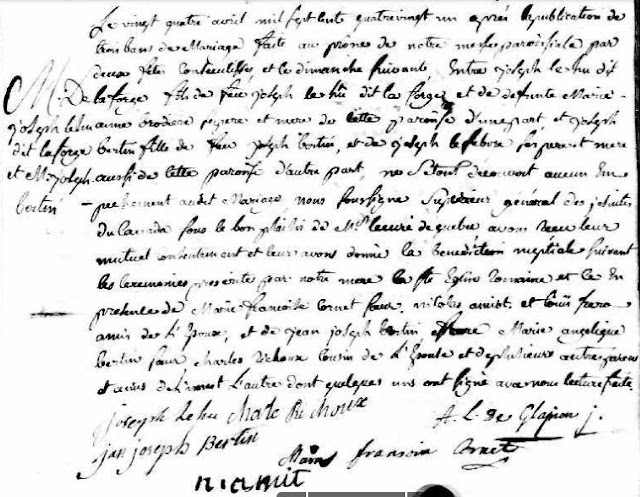 Le vingt quatre avril mil sept cent quatrevingt un après la publication de
trois bans de Mariage faite au prône de notre messe paroissiale par
deux fetes consecutives et le dimanche suivante Entre joseph le hu dit
M.
De laforge fils de feu joseph le hu dit la forge et de defunte Marie
joseph lehu
anne brodiere ses pere et mere de cette paroisse d'une part et joseph
dit laforge
bertin fille de feu joseph bertin, et de joseph lefebvre ses pere et mere
et M joseph
aussi de cette paroisse d'autre part, ne s'etant decouvert aucun Em-
bertin
pechement audit Mariage nous soussigné Superieur général des jesuites
du Canada sous le bon plaisir de le curé de quebec avons reçu leur
mutuel consentement et leur avons donné la benediction nuptiale suivant
les ceremonies prescrites par notre mere la ste Eglise romaine et ce En
presence de Marie francoise Cornet soeur, nicolas amiot, et Louis frere
amis de L'Epoux, et de jean joseph bertin frere Marie angelique
bertin soeur charles Richoux Cousin de L'Epouse et de plusieurs autres parens
et amis de L'un et L'autre dont quelques uns ont signé avec nous lecture faite.
joseph Lehu charle Richoux
A. L. De Glapion j.
jan joseph Bertin
Marie fransoin Cornet
n amiot